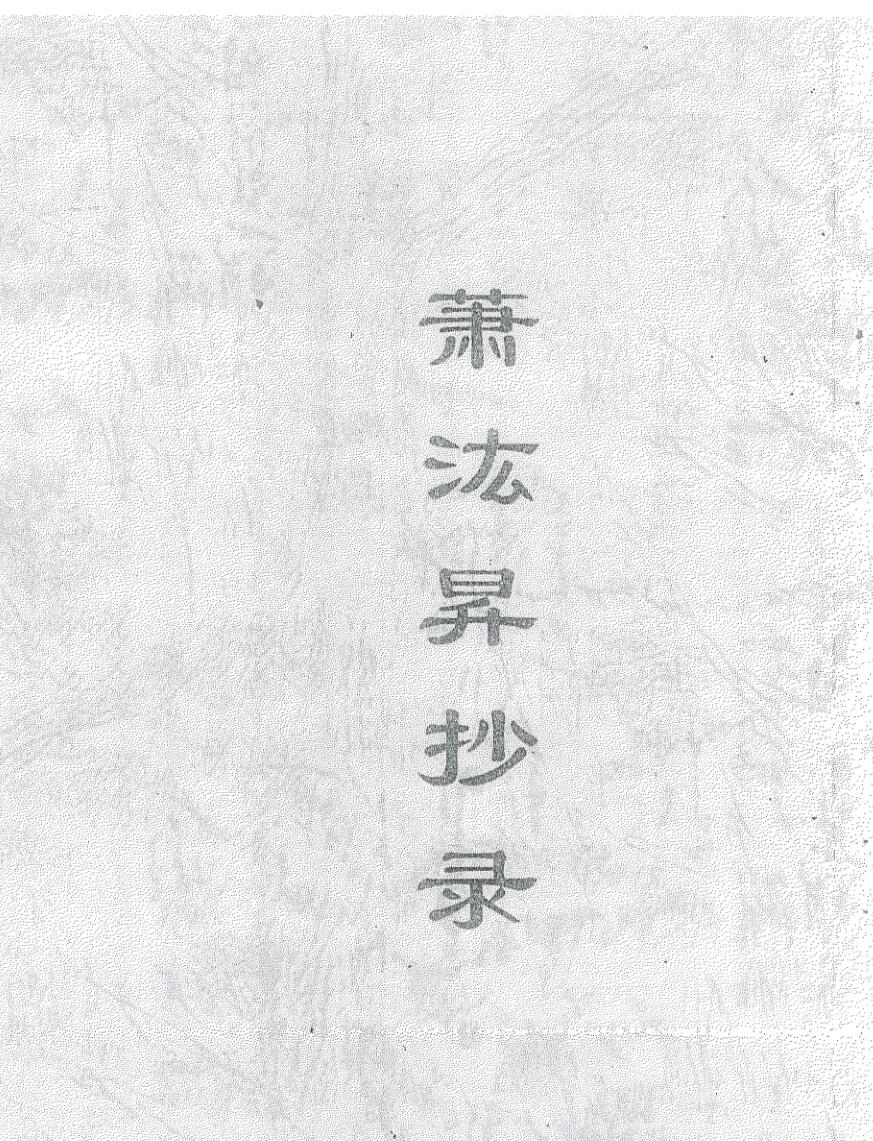 萧汯昇抄录